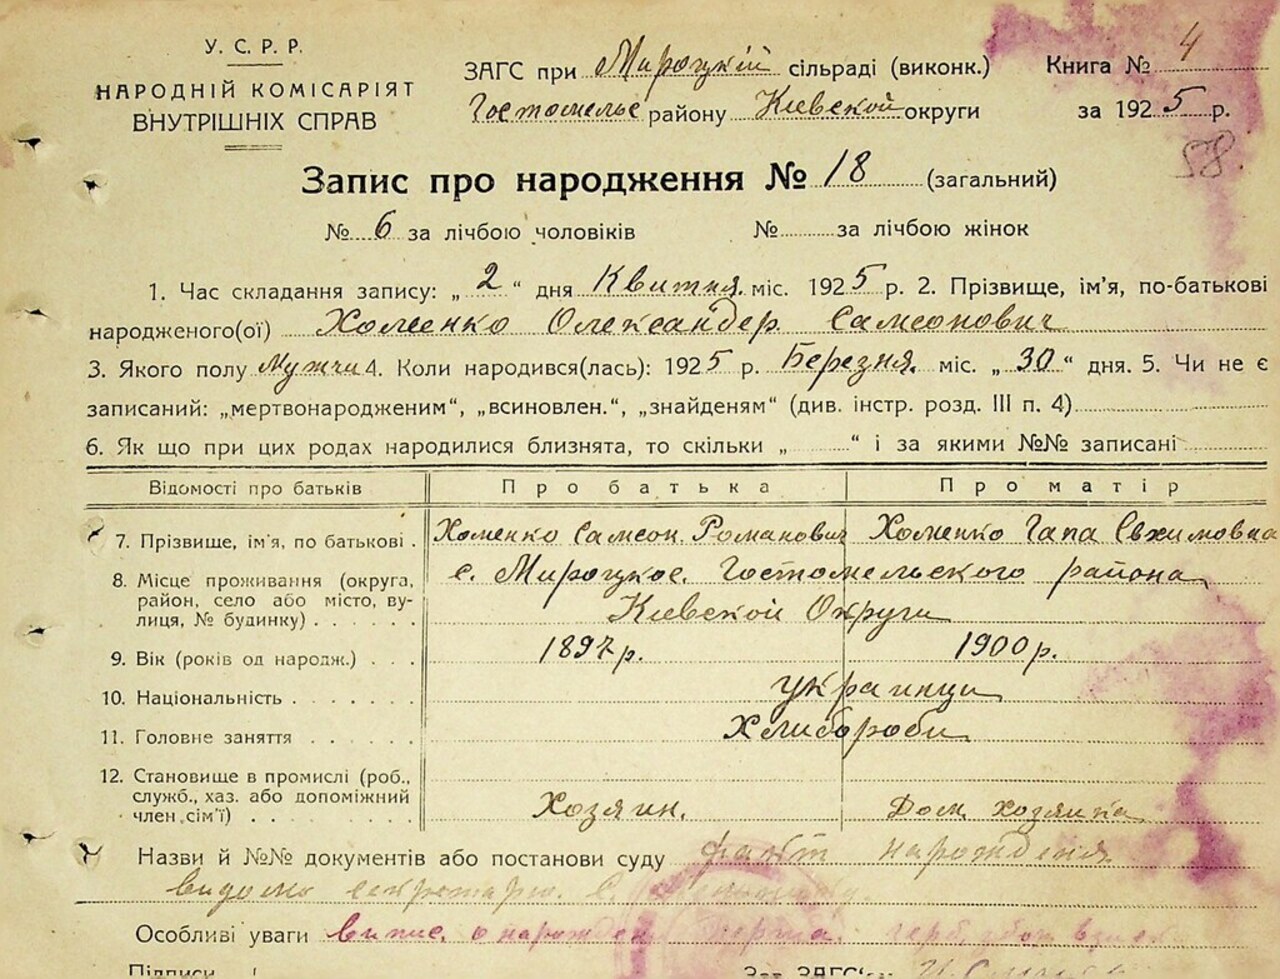 У. С. Р. Р.
НАРОДНІЙ КОМІСАРІЯТ
ВНУТРІШНІХ СПРАВ
ЗАГС при Мироцкій сільраді (виконк.) Книга № 4
Гостомельс району Киевской округи за 1925 р.
58.
Запис про народження № 18 (загальний)
№ 6 за лічбою чоловіків № за лічбою жінок
1. Час складання запису: „ 2 “ дня Квитня. міс. 1925 р. 2. Прізвище, ім'я, по-батькові
народженого(ої) Хоменко Олександер Самсонович
3. Якого полу Мужчи 4. Коли народився(лась): 1925 р. Березня. міс. „ 30 “ дня. 5. Чи не є
записаний: „мертвонародженим“, „всиновлен.“, „знайденям“ (див. інстр. розд. III п. 4)
6. Як що при цих родах народилися близнята, то скільки „ “ і за якими №№ записані
Відомості про батьків Про батька Про матір
7. Прізвище, ім'я, по батькові . Хоменко Самсон Романович Хоменко Гапа Евхимовна
8. Місце проживання (округа, с. Мироцкое. Гостомельского района
район, село або місто, ву-
лиця, № будинку) . . . . . Киевской Округи
9. Вік (років од народж.) . . . 1897 р. 1900 р.
10. Національність . . . . . . . украинци
11. Головне заняття . . . . . . Хлибороби
12. Становище в промислі (роб.,
служб., хаз. або допоміжний Хозяин. Дом. хозяика
член сім'ї) . . . . . . . .
Назви й №№ документів або постанови суду факт народження
видомо секретарю. С.
Особливі уваги випис. о нарожден
Підписи Зав. ЗАГС'ом